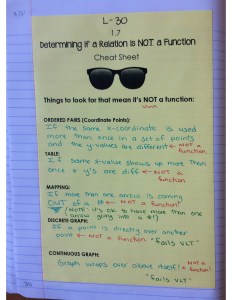 L-30
1.7
Determining if a Relation is NOT a Function
Cheat Sheet
Things to look for that mean it's NOT a function:
ORDERED PAIRS (Coordinate Points):
If the same x-coordinate is used
more than once in a set of points
and the y-values are different ← NOT a
function!
TABLE:
If same x-value shows up more than
once & y's are diff ← NOT a
function!
MAPPING:
If more than one arrow is coming
OUT of a # ← NOT a function!
(NOTE: it's ok to have more than one
arrow going into a #!)
DISCRETE GRAPH:
If a point is directly over another
point ← NOT a function! "fails VLT"
CONTINUOUS GRAPH:
Graph wraps over above itself! ← NOT a
function!
"fails VLT"